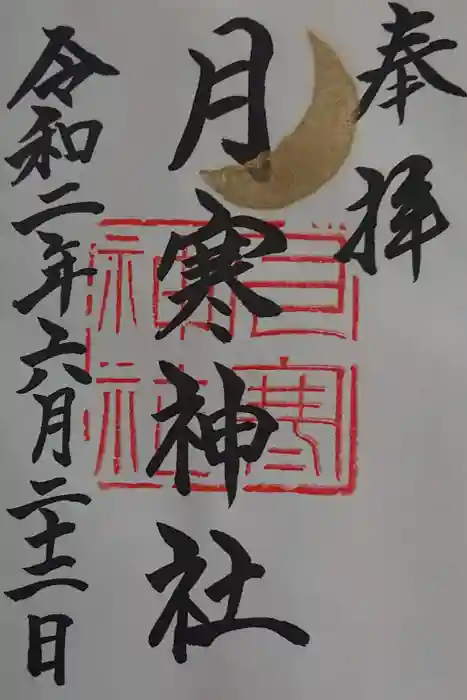 奉拝
月寒神社
令和二年六月二十二日
月寒
神社